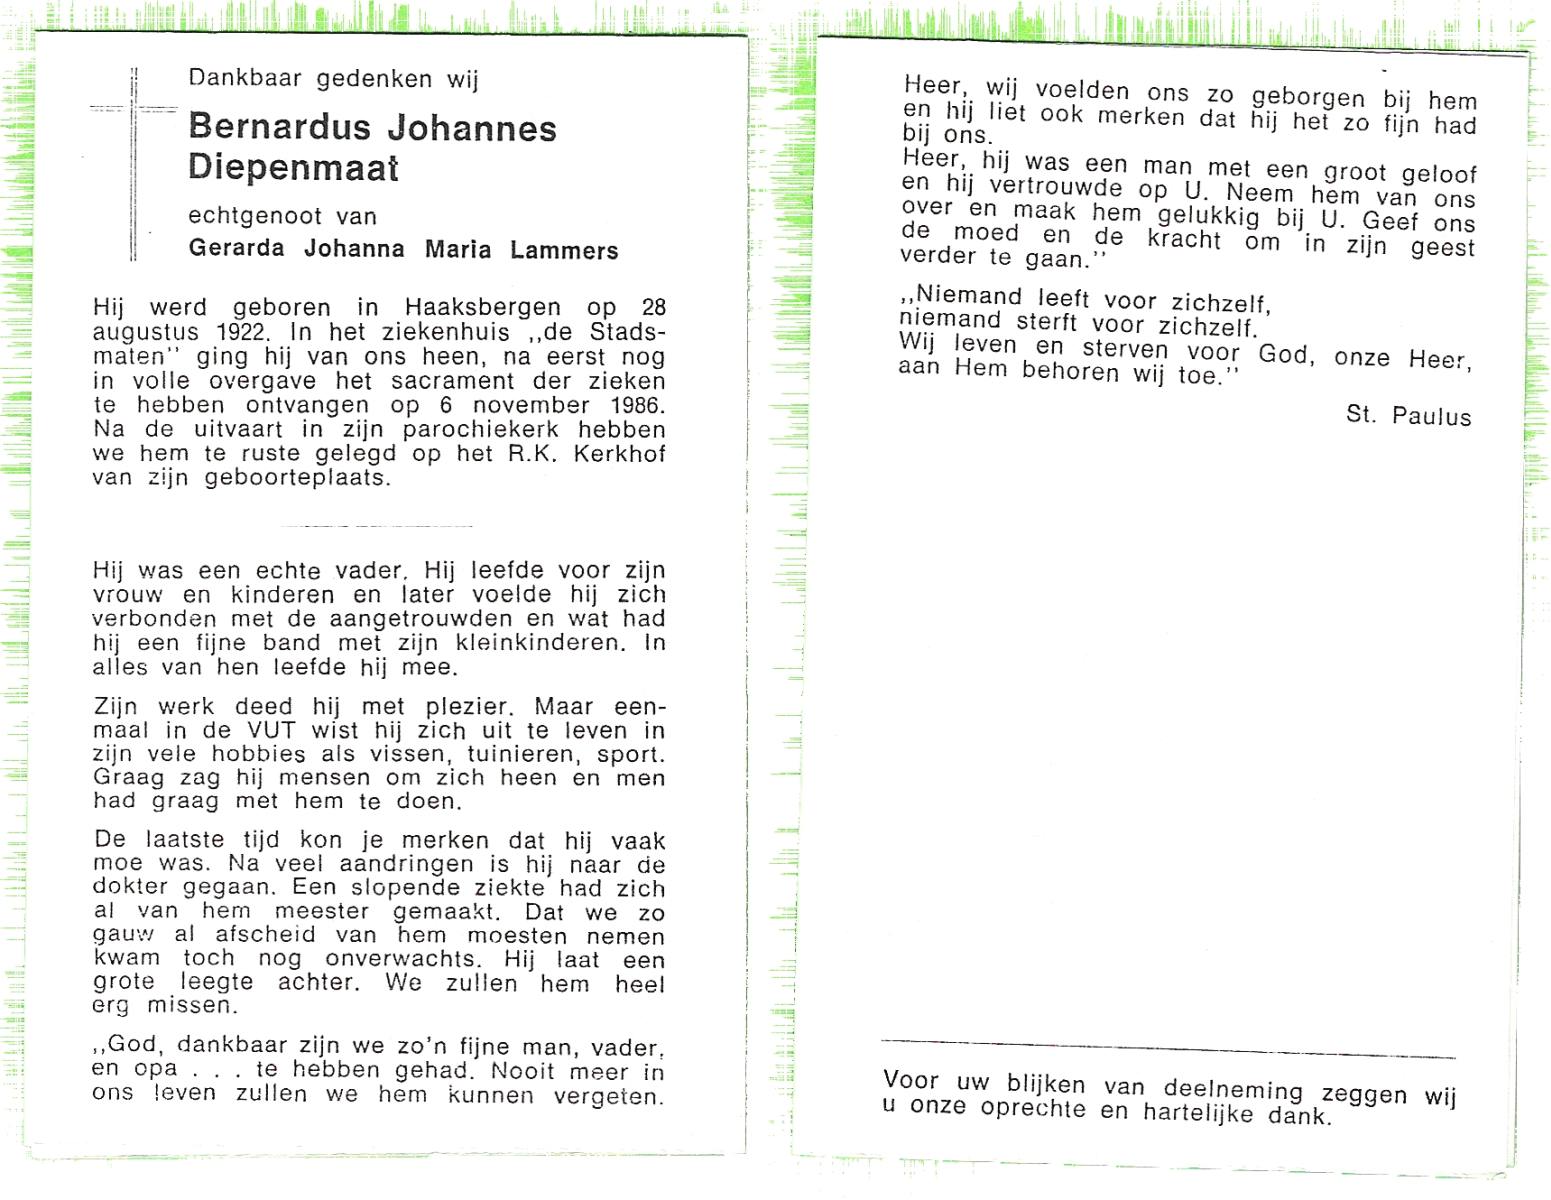 Dankbaar gedenken wij
Bernardus Johannes
Diepenmaat
echtgenoot van
Gerarda Johanna Maria Lammers
Hij werd geboren in Haaksbergen op 28
augustus 1922. In het ziekenhuis ,,de Stads-
maten'' ging hij van ons heen, na eerst nog
in volle overgave het sacrament der zieken
te hebben ontvangen op 6 november 1986.
Na de uitvaart in zijn parochiekerk hebben
we hem te ruste gelegd op het R.K. Kerkhof
van zijn geboorteplaats.
Hij was een echte vader. Hij leefde voor zijn
vrouw en kinderen en later voelde hij zich
verbonden met de aangetrouwden en wat had
hij een fijne band met zijn kleinkinderen. In
alles van hen leefde hij mee.
Zijn werk deed hij met plezier. Maar een-
maal in de VUT wist hij zich uit te leven in
zijn vele hobbies als vissen, tuinieren, sport.
Graag zag hij mensen om zich heen en men
had graag met hem te doen.
De laatste tijd kon je merken dat hij vaak
moe was. Na veel aandringen is hij naar de
dokter gegaan. Een slopende ziekte had zich
al van hem meester gemaakt. Dat we zo
gauw al afscheid van hem moesten nemen
kwam toch nog onverwachts. Hij laat een
grote leegte achter. We zullen hem heel
erg missen.
,,God, dankbaar zijn we zo'n fijne man, vader,
en opa . . . te hebben gehad. Nooit meer in
ons leven zullen we hem kunnen vergeten.
Heer, wij voelden ons zo geborgen bij hem
en hij liet ook merken dat hij het zo fijn had
bij ons.
Heer, hij was een man met een groot geloof
en hij vertrouwde op U. Neem hem van ons
over en maak hem gelukkig bij U. Geef ons
de moed en de kracht om in zijn geest
verder te gaan.''
,,Niemand leeft voor zichzelf,
niemand sterft voor zichzelf.
Wij leven en sterven voor God, onze Heer,
aan Hem behoren wij toe.''
St. Paulus
Voor uw blijken van deelneming zeggen wij
u onze oprechte en hartelijke dank.